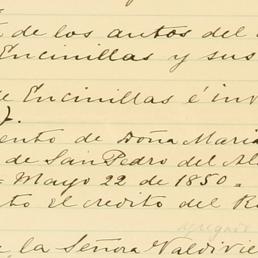 de los autos del
Encinillas y sus
Encinillas é inv
).
ento de Doña Maria
de San Pedro del Al
Mayo 22 de 1850.
to el credito del R
agregado
la Señora Valdivie